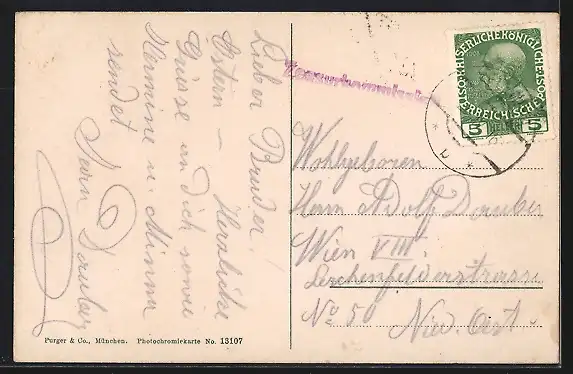 Lieber Bruder!
Ostern – Herzliche
Grüsse an dich sowie
Hermine u. Minna
sendet
Zensurkommission
SERLICHEKÖNIGLICHE
ERREICHISCHE
5 5
Wohlgeboren
Herrn Adolf Dauber
Wien VIII.
Lerchenfelderstrasse
No 50 Nied. Öst.
Purger & Co., München. Photochromiekarte No. 13107